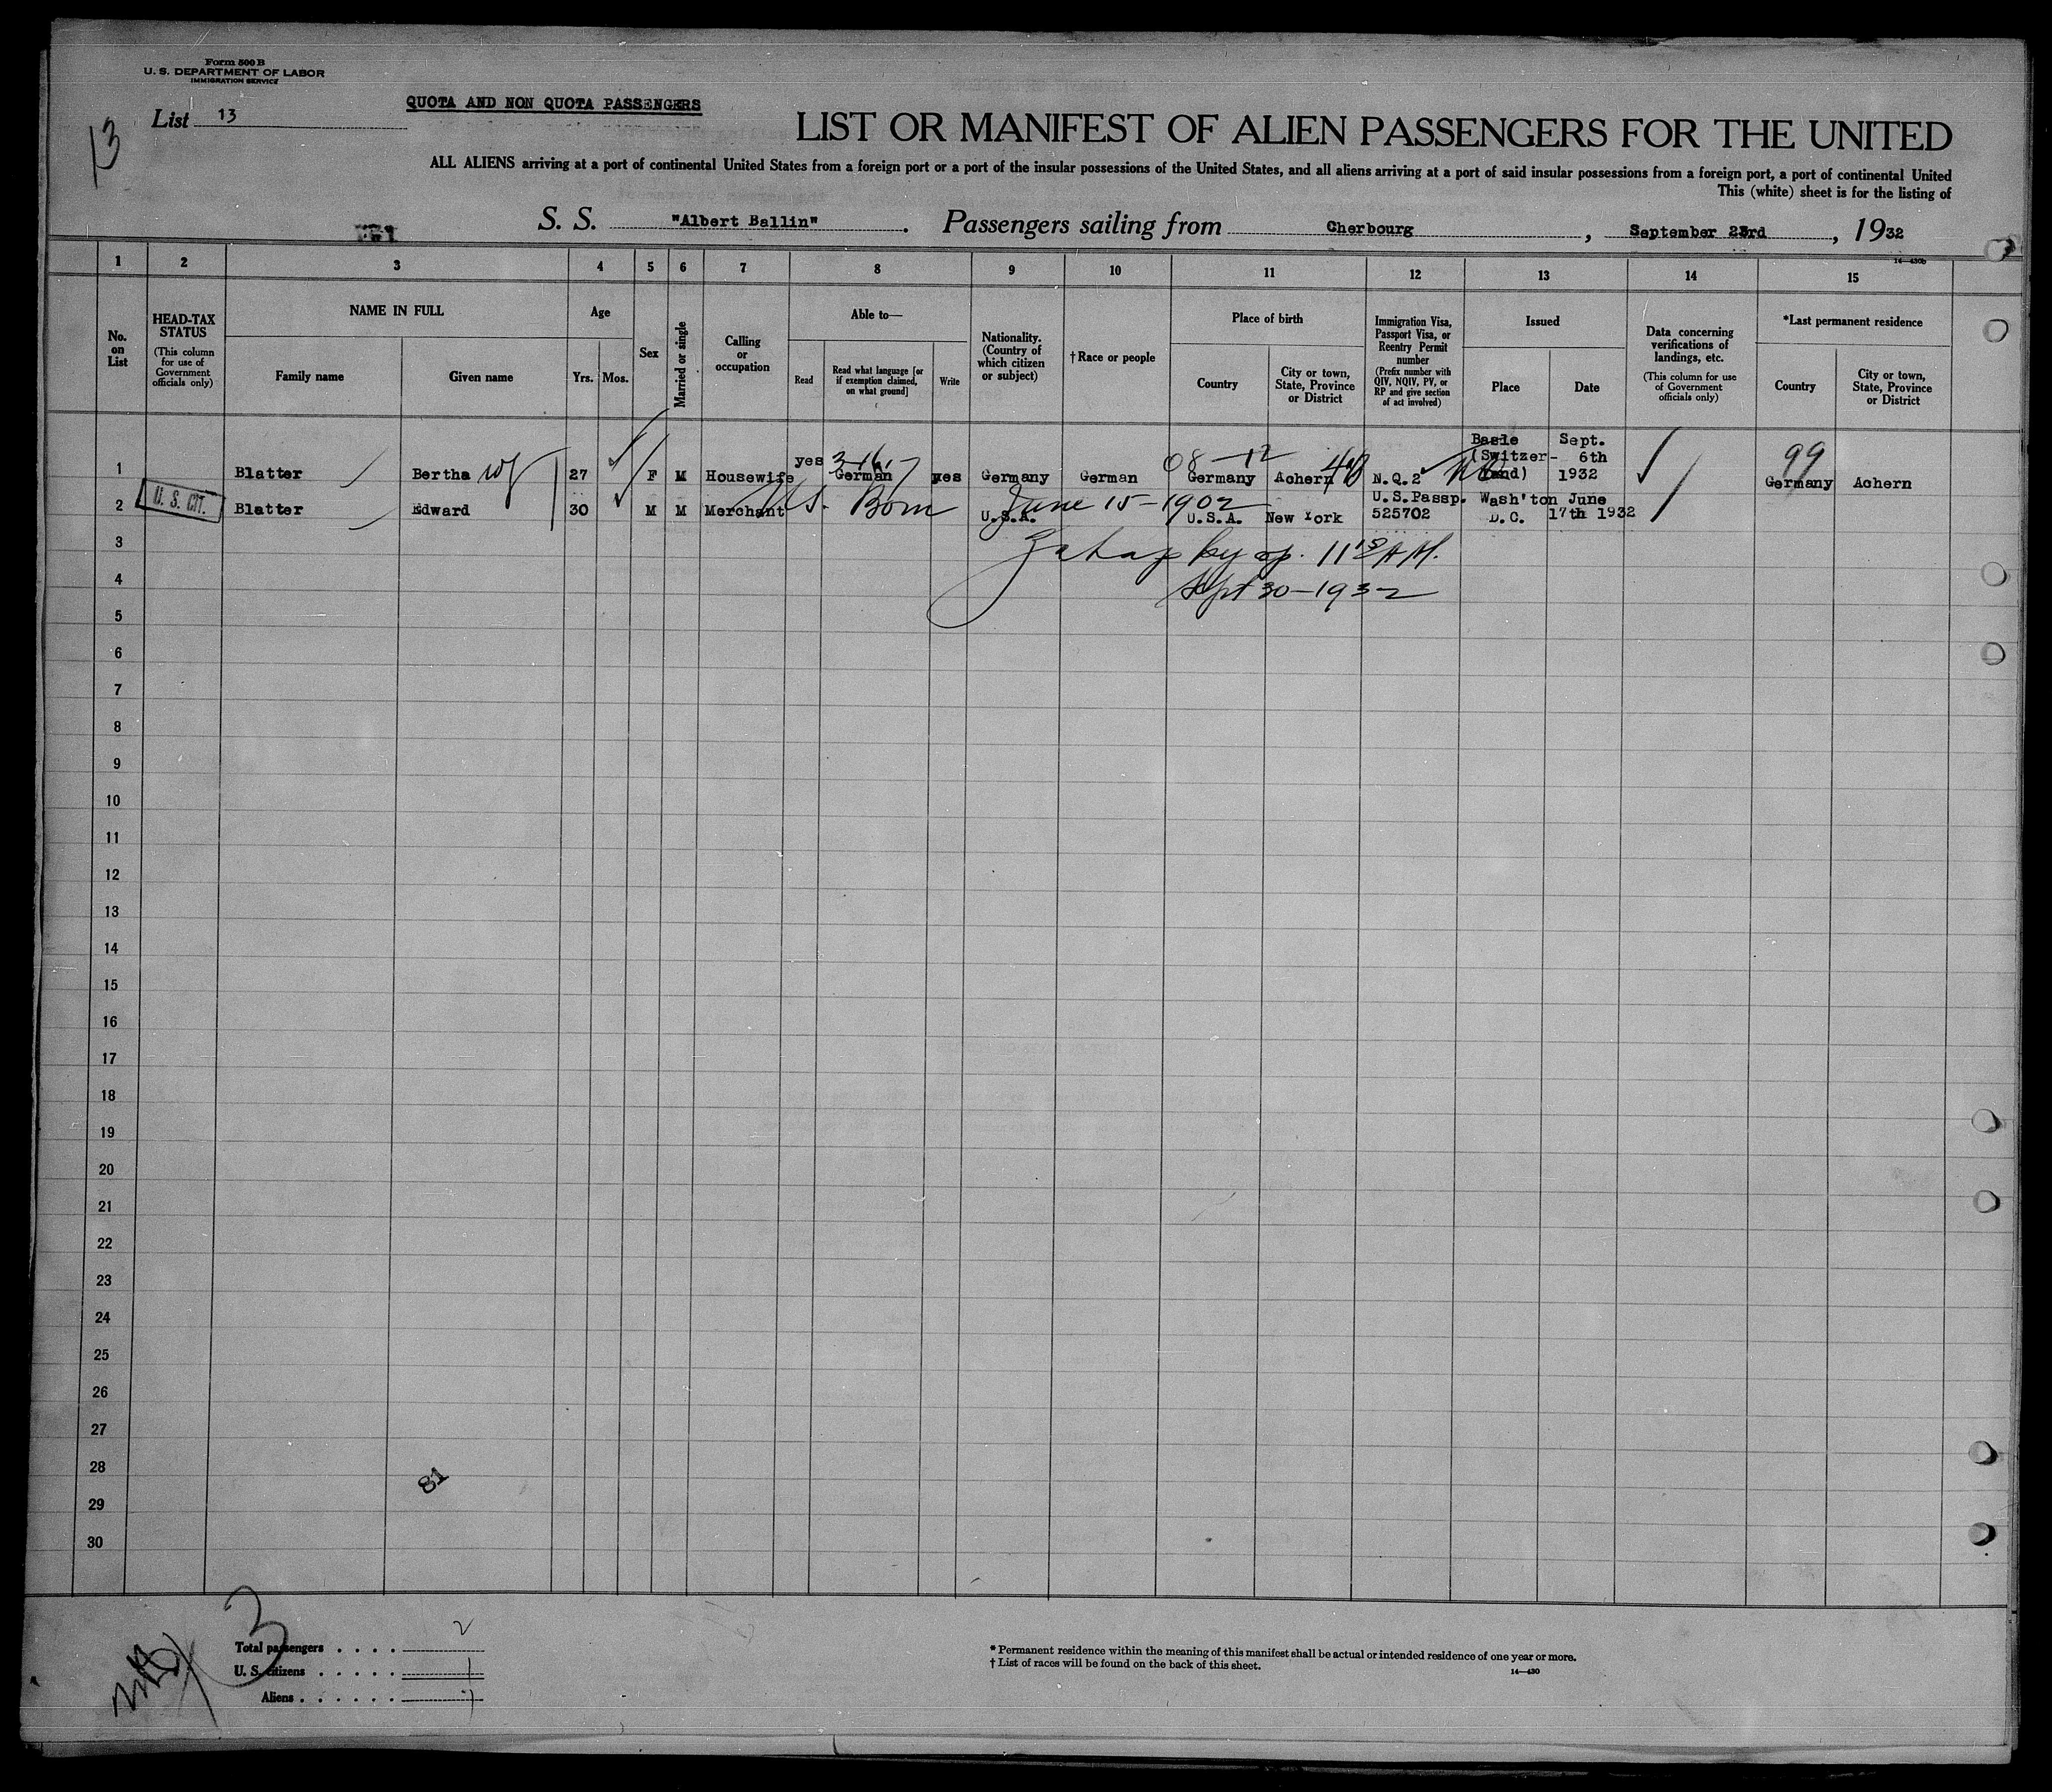 Form 500 B
U. S. DEPARTMENT OF LABOR
IMMIGRATION SERVICE
List 13
13
QUOTA AND NON QUOTA PASSENGERS
LIST OR MANIFEST OF ALIEN PASSENGERS FOR THE UNITED
ALL ALIENS arriving at a port of continental United States from a foreign port or a port of the insular possessions of the United States, and all aliens arriving at a port of said insular possessions from a foreign port, a port of continental United
This (white) sheet is for the listing of
S. S. "Albert Ballin". Passengers sailing from Cherbourg, September 23rd, 1932
14—430b
1 2 3 4 5 6 7 8 9 10 11 12 13 14 15
No. on List
HEAD-TAX STATUS
(This column for use of Government officials only)
NAME IN FULL
Family name Given name
Age
Yrs. Mos.
Sex
Married or single
Calling or occupation
Able to—
Read
Read what language [or if exemption claimed, on what ground]
Write
Nationality. (Country of which citizen or subject)
† Race or people
Place of birth
Country
City or town, State, Province or District
Immigration Visa, Passport Visa, or Reentry Permit number
(Prefix number with QIV, NQIV, PV, or RP and give section of act involved)
Issued
Place Date
Data concerning verifications of landings, etc.
(This column for use of Government officials only)
*Last permanent residence
Country
City or town, State, Province or District
1 Blatter Bertha wf 27 F M Housewife yes German yes Germany German Germany Achern N.Q.2 Basle (Switzer-land) Sept. 6th 1932 Germany Achern
08-12
99
U. S. CIT.
2 Blatter Edward 30 M M Merchant U.S.A. U.S.A. New York U.S.Passp. 525702 Wash'ton D.C. June 17th 1932
U.S. Born June 15-1902
3
by op. 11 A.M.
4
Sept 30-1932
5
6
7
8
9
10
11
12
13
14
15
16
17
18
19
20
21
22
23
24
25
26
27
28
29
30
81
3
Total passengers . . . . 2
U. S. citizens . . . . . 1
Aliens . . . . . . 1
* Permanent residence within the meaning of this manifest shall be actual or intended residence of one year or more.
† List of races will be found on the back of this sheet.
14—430